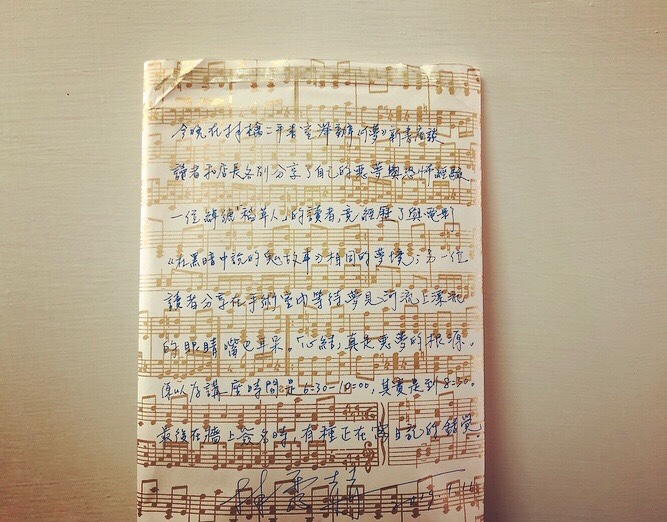 今晚在手槍二手書室舉辦《夢》新書座談
讀者和店長各別分享了自己的惡夢與恐怖經驗
一位綽號"稻草人"的讀者,竟經歷了與電影
《在黑暗中說的鬼故事》相同的夢境;另一位
讀者分享在手術室內等待夢見河流上漂流
的眼睛嘴巴耳朵。「心結」真是惡夢的根源。
原以為講座時間是6:30-10:00,其實是到8:30。
最後在牆上簽名時,有種正在寫日記的錯覺。